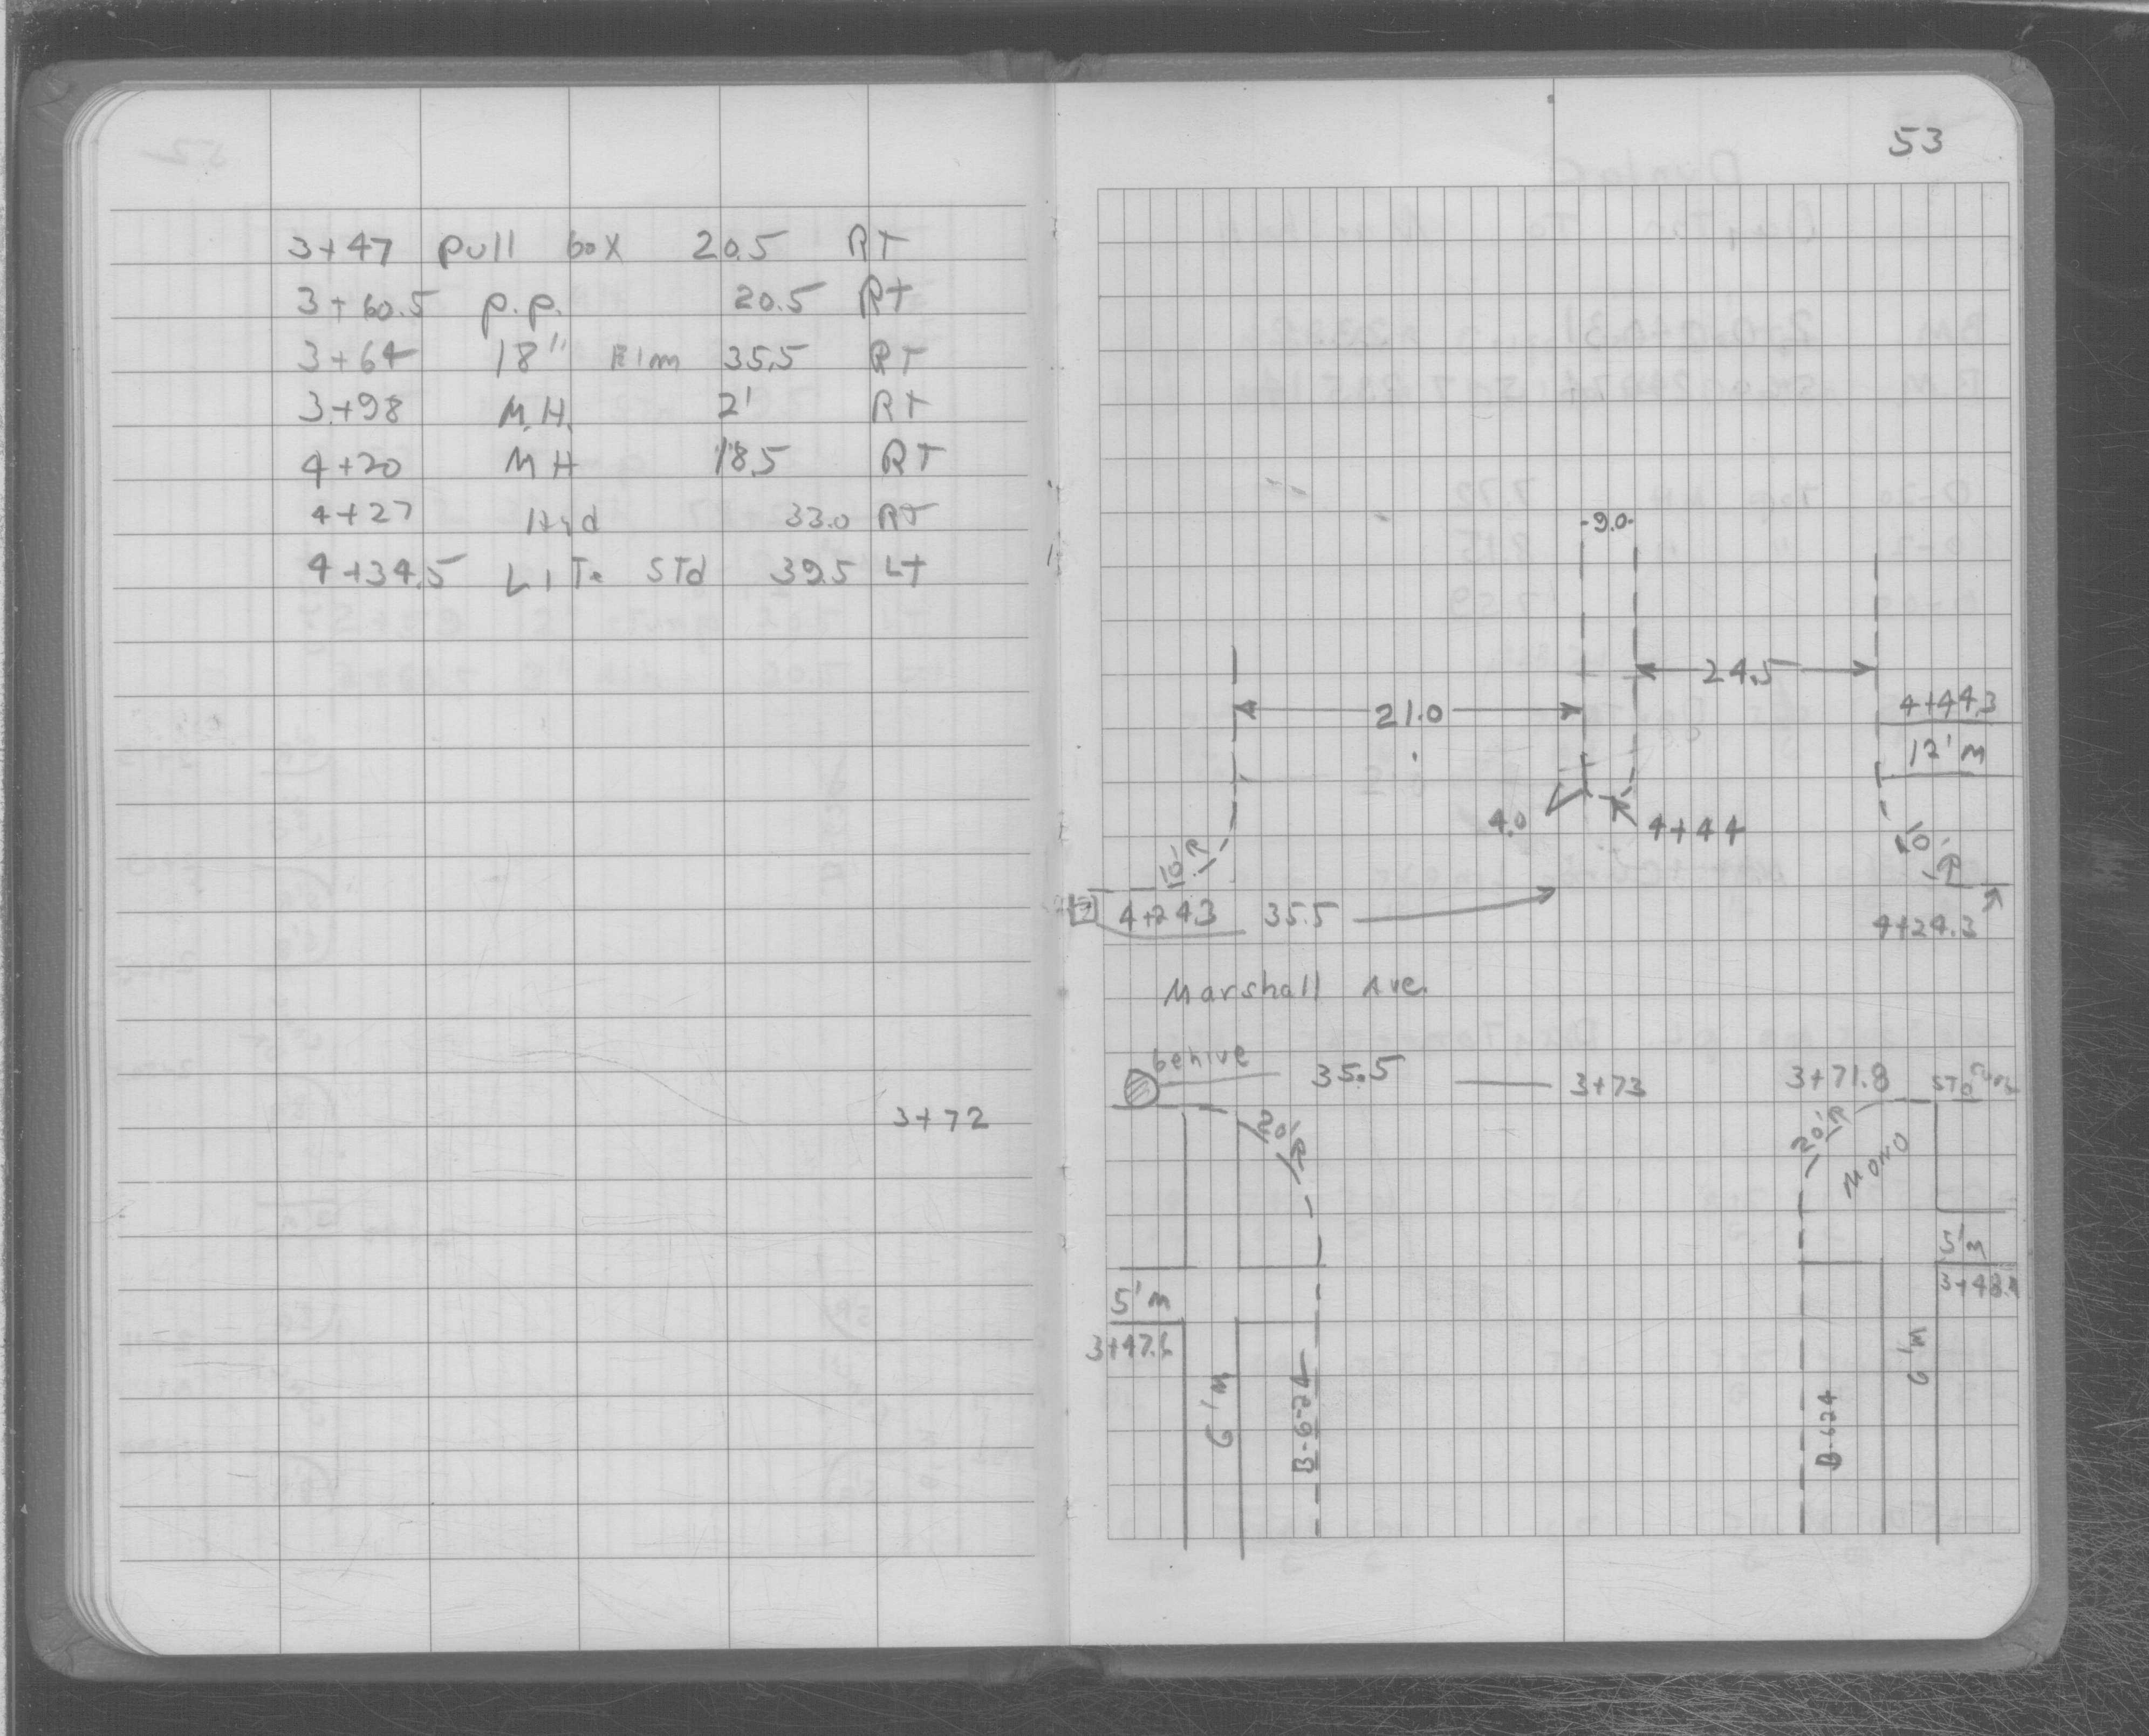 3+47 pull box 20.5 RT
3+60.5 p.p. 20.5 RT
3+64 18" Elm 35.5 RT
3+98 M.H. 2' RT
4+20 MH 18.5 RT
4+27 Hyd 33.0 RT
4+34.5 LITe STd 39.5 LT
3+72
53
9.0
24.5
21.0
4+44.3
12' M
4.0
4+44
10' R
10' R
4+24.3 35.5
4+24.3
Marshall Ave.
behive
35.5 3+73
3+71.8 STD Curb
20' R
20' R
MONO
5' M
3+47.6
5' M
6' M
B-624
B-624
6' M